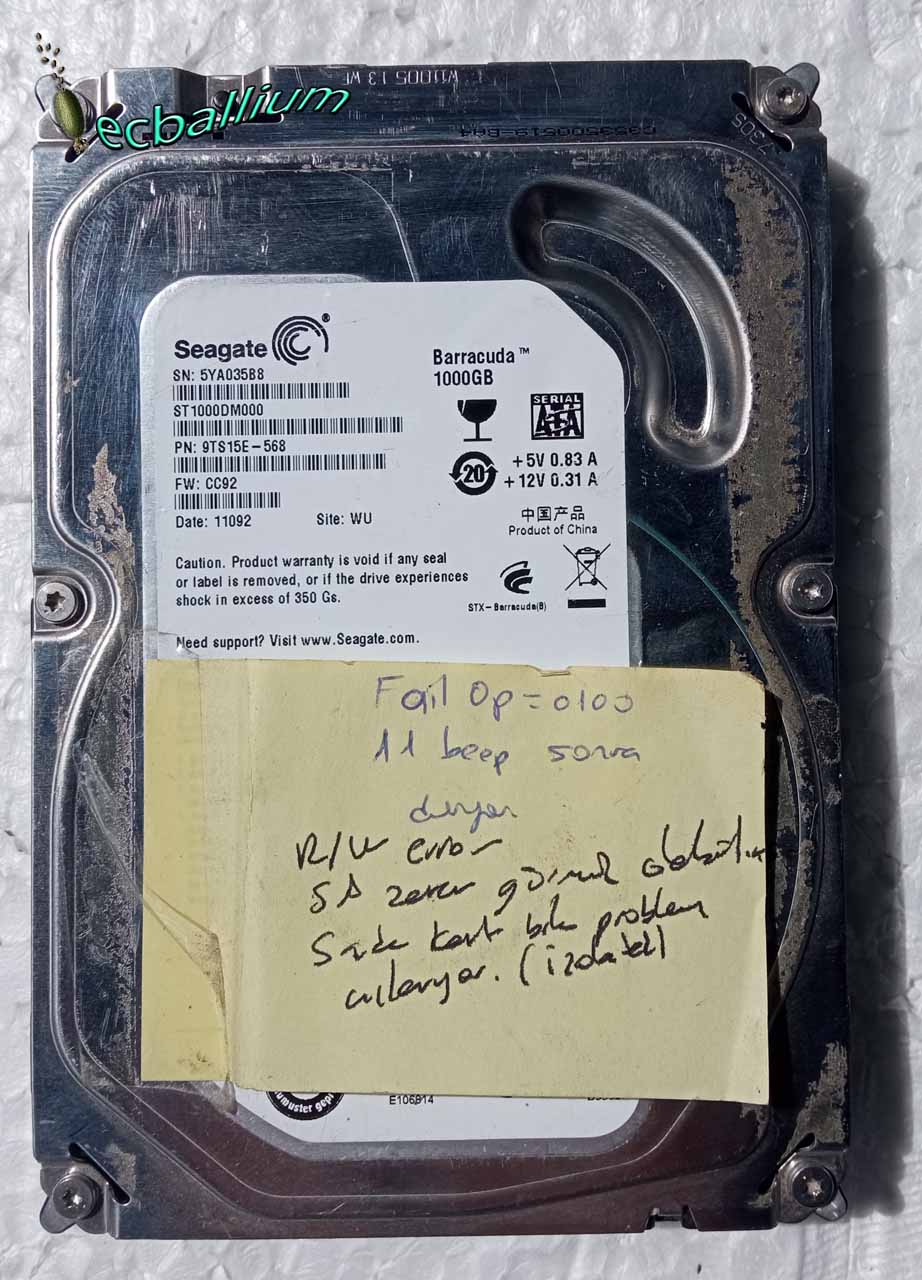 ecballium
Seagate
SN: 5YA035B8
ST1000DM000
PN: 9TS15E-568
FW: CC92
Date: 11092 Site: WU
Barracuda™
1000GB
SERIAL
ATA
20
+5V 0.83 A
+12V 0.31 A
中国产品
Product of China
Caution. Product warranty is void if any seal
or label is removed, or if the drive experiences
shock in excess of 350 Gs.
STX-Barracuda(B)
Need support? Visit www.Seagate.com.
Fail Op=0100
11 beep sonra
duruyor
R/W error
SA zarar görmüş olabilir
Sade kart bile problem
(izolateli)
E106814